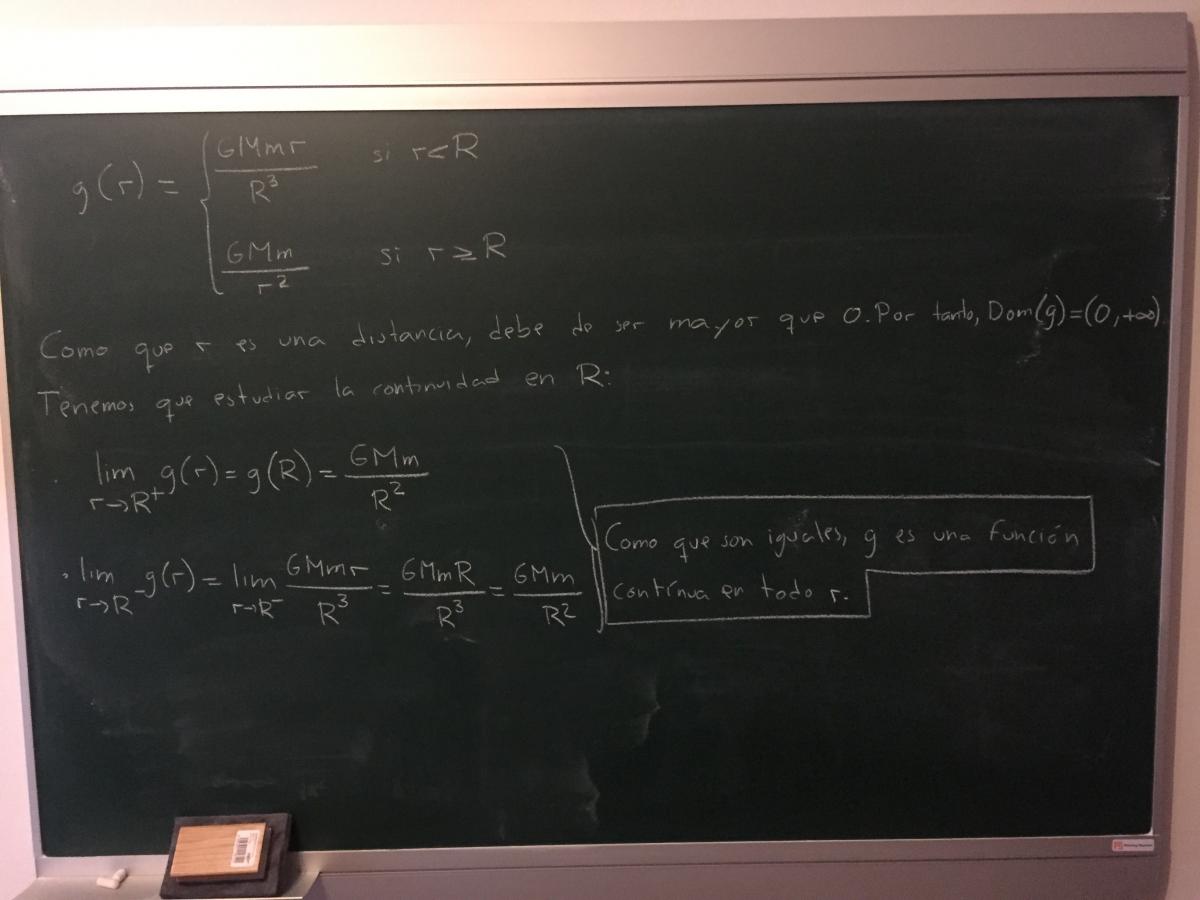 g(r) = { GMmr / R³ si r < R
GMm / r² si r ≥ R
Como que r es una distancia, debe de ser mayor que 0. Por tanto, Dom(g) = (0, +∞)
Tenemos que estudiar la continuidad en R:
· lim r→R⁺ g(r) = g(R) = GMm / R²
· lim r→R⁻ g(r) = lim r→R⁻ GMmr / R³ = GMmR / R³ = GMm / R²
Como que son iguales, g es una función
contínua en todo r.